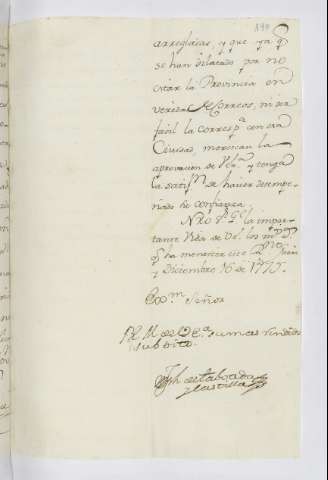 arreglarlas, y que ya q.e
se han dilatado por no
estar la Provincia en
vereda de Correos, ni ser
facil la corresp.a con esa
Ciudad, merezcan la
aprovacion de V.Ex.a y tenga
la satisf.n de haver desempe-
ñado la confianza.
Nro S.or G.e la impor-
tante Vida de V.E. los m.s a.s
q.e ha menester
y Diciembre 16 de 1775.
Exc.mo Señor
B. L. M. de V.E. su mas rendido
subdito.
Jph de Taboada
y Castilla